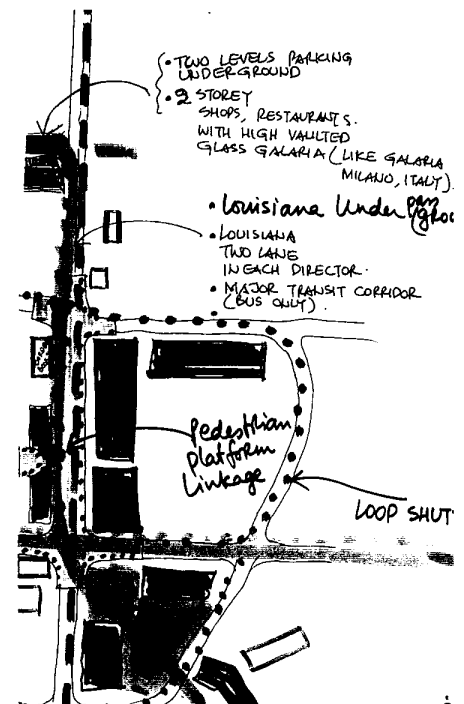 • TWO LEVELS PARKING
UNDERGROUND
• 2 STOREY
SHOPS, RESTAURANTS.
WITH HIGH VAULTED
GLASS GALARIA (LIKE GALARIA
MILANO, ITALY).
• Louisiana Under
• LOUISIANA
TWO LANE
IN EACH DIRECTOR.
• MAJOR TRANSIT CORRIDOR
(BUS ONLY).
Pedestrian
Platform
Linkage
LOOP SHUT